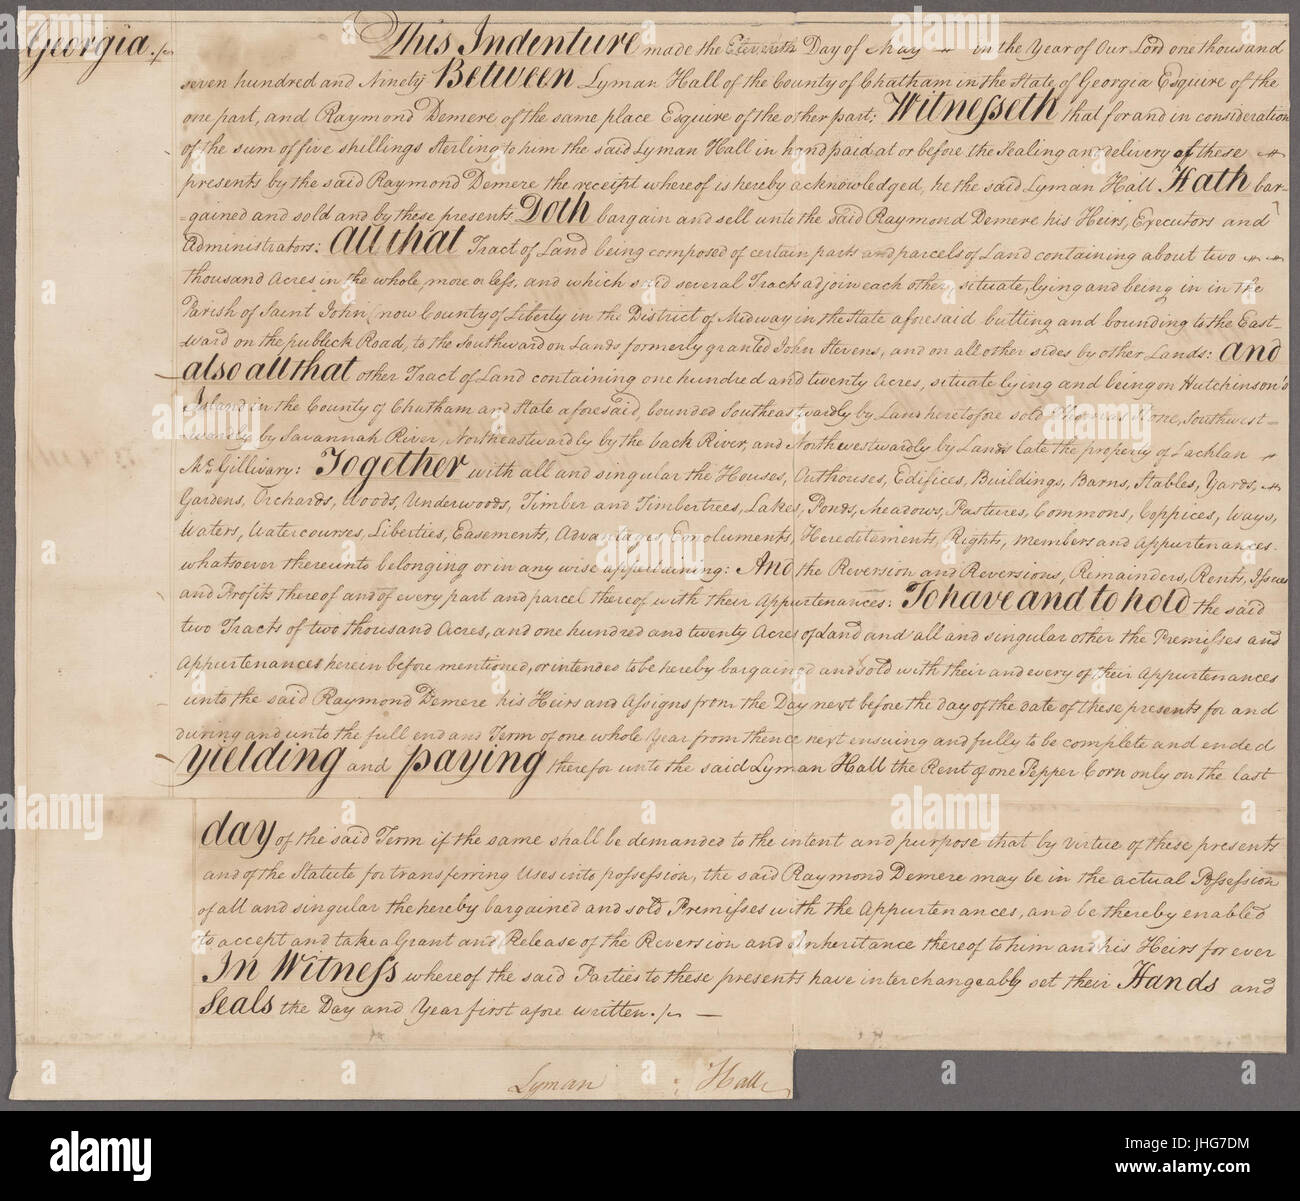 Georgia./.
This Indenture made the Eleventh Day of May in the Year of Our Lord one thousand
seven hundred and Ninety Between Lyman Hall of the County of Chatham in the State of Georgia Esquire of the
one part, and Raymond Demere of the same place Esquire of the other part; Witnesseth that for and in consideration
of the sum of five shillings sterling to him the said Lyman Hall in hand paid at or before the sealing and delivery of these
presents by the said Raymond Demere the receipt whereof is hereby acknowledged, he the said Lyman Hall Hath bar-
-gained and sold and by these presents Doth bargain and sell unto the said Raymond Demere his Heirs, Executors and
Administrators: All that Tract of Land being composed of certain parts and parcels of Land containing about two
thousand Acres, in the whole, more or less, and which said several Tracts adjoin each other, situate, lying and being in in the
Parish of Saint John (now County of Liberty in the District of Midway in the State aforesaid butting and bounding to the East-
-ward on the publick Road, to the Southward on Lands formerly granted John Stevens, and on all other sides by other Lands: And
also all that other Tract of Land containing one hundred and twenty Acres, situate lying and being on Hutchinson's
Island in the County of Chatham and State aforesaid, bounded Southeastwardly by Land heretofore sold Thomas Stone, Southwest-
-wardly by Savannah River, Northeastwardly by the back River, and Northwestwardly by Lands late the property of Lachlan
McGillivary: Together with all and singular the Houses, Outhouses, Edifices, Buildings, Barns, Stables, Yards,
Gardens, Orchards, Woods, Underwoods, Timber and Timbertrees, Lakes, Ponds, Meadows, Pastures, Commons, Coppices, Ways,
Waters, Watercourses, Liberties, Easements, Advantages, Emoluments, Hereditaments, Rights, Members and Appurtenances
whatsoever thereunto belonging or in any wise appertaining: And the Reversion and Reversions, Remainders, Rents, Issues
and Profits thereof and of every part and parcel thereof with their Appurtenances: To have and to hold the said
two Tracts of two thousand Acres, and one hundred and twenty Acres of Land and all and singular other the Premisses and
Appurtenances herein before mentioned, or intended to be hereby bargained and sold with their and every of their Appurtenances
unto the said Raymond Demere his Heirs and Assigns from the Day next before the day of the date of these presents for and
during and unto the full end and Term of one whole Year from thence next ensuing and fully to be complete and ended
yielding and paying therefor unto the said Lyman Hall the Rent of one Pepper Corn only on the last
day of the said Term if the same shall be demanded to the intent and purpose that by virtue of these presents
and of the Statute for transferring Uses into possession, the said Raymond Demere may be in the actual Possession
of all and singular the hereby bargained and sold Premisses with the Appurtenances, and be thereby enabled
to accept and take a Grant and Release of the Reversion and Inheritance thereof to him and his Heirs for ever
In Witness whereof the said Parties to these presents have interchangeably set their Hands and
Seals the Day and Year first afore written./.
Lyman Hall
alamy
Image ID: JHG7DM
www.alamy.com